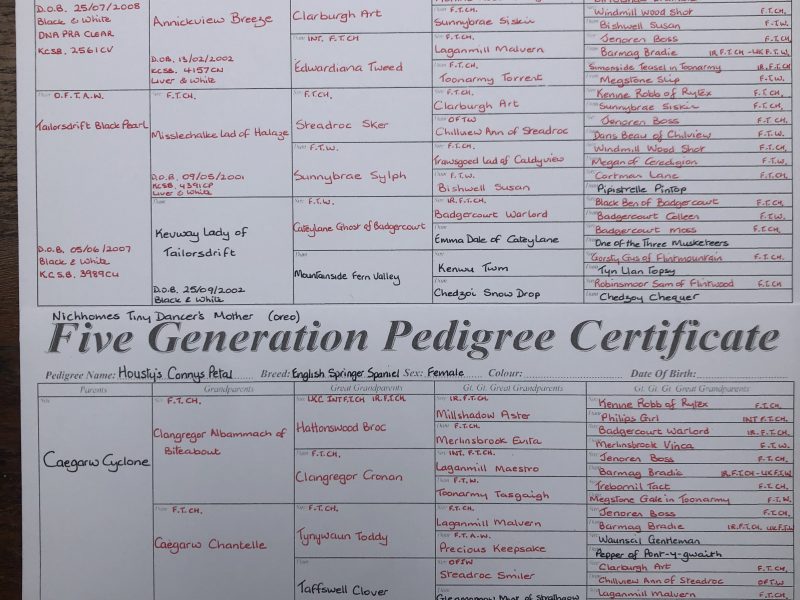 D.O.B. 25/07/2008
Black & White
DNA PRA CLEAR
KCSB. 2561CV
Annickview Breeze
D.O.B. 13/02/2002
KCSB. 4157CN
Liver & White
Clarburgh Art
INT. F.T.CH
Edwardiana Tweed
F.T.CH.
Sunnybrae Siskin
F.T.CH.
Laganmill Malvern
F.T.CH.
Toonarmy Torrent
Windmill Wood Shot F.T.CH.
Bishwell Susan F.T.W.
Jenoren Boss F.T.CH.
Barmag Bradie IR.F.T.CH -UK F.T.W.
Simonside Teasel in Toonarmy IR.F.T.CH
Megstone Slip F.T.W.
O.F.T.A.W.
Tailorsdrift Black Pearl
D.O.B. 05/06/2007
Black & White
K.C.S.B. 3989CU
F.T.CH.
Misslechalke Lad of Halaze
D.O.B. 09/05/2001
KCSB. 4391CP
Liver & White
Kevway Lady of
Tailorsdrift
D.O.B. 25/09/2002
Black & White
F.T.CH.
Steadroc Sker
F.T.W.
Sunnybrae Sylph
F.T.W.
Cateylane Ghost of Badgercourt
Mountainside Fern Valley
F.T.CH.
Clarburgh Art
OFTW
Chillview Ann of Steadroc
F.T.CH.
Trawsgoed Lad of Caldyview
F.T.W.
Bishwell Susan
IR.F.T.CH.
Badgercourt Warlord
Emma Dale of CateyLane
Kenwu Twm
Chedzoi Snow Drop
Kenine Robb of Rytex F.T.CH.
Sunnybrae Siskin F.T.CH.
Jenoren Boss F.T.CH.
Dans Beau of Chilview F.T.W.
Windmill Wood Shot F.T.CH.
Megan of Ceredigion F.T.W.
Cortman Lane F.T.CH.
Pipistrelle Pintop
Black Ben of Badgercourt F.T.CH.
Badgercourt Colleen F.T.W.
Badgercourt Moss F.T.CH.
One of the Three Musketeers
Gorsty Gus of Flintmountain F.T.CH.
Tyn Llan Topsy
Robinsmoor Sam of Flintwood F.T.CH
Chedzoy Chequer
Nichhomes Tiny Dancer's Mother (oreo)
Five Generation Pedigree Certificate
Pedigree Name: Housty's Connys Petal Breed: English Springer Spaniel Sex: Female Colour: Date Of Birth:
Parents Grandparents Great Grandparents Gt. Gt. Great Grandparents Gt. Gt. Great Grandparents
Caegarw Cyclone
F.T.CH.
Clangregor Albammach of
Biteabout
F.T.CH.
Caegarw Chantelle
UKC INT F.T.CH IR.F.T.CH.
Hattonswood Broc
F.T.CH.
Clangregor Cronan
F.T.CH.
Tynywaun Toddy
Taffswell Clover
IR.F.T.CH.
Millshadow Aster
F.T.CH.
Merlinsbrook Enta
INT. F.T.CH.
Laganmill Maestro
F.T.W.
Toonarmy Tasgaigh
F.T.CH.
Laganmill Malvern
F.T.A.W.
Precious Keepsake
OFTW
Steadroc Smiler
Kenine Robb of Rytex F.T.CH.
Philips Girl INT F.T.CH
Badgercourt Warlord IR.F.T.CH.
Merlinsbrook Vinca F.T.W.
Jenoren Boss F.T.CH.
Barmag Bradie IR.F.T.CH-UK F.T.W
Trebornil Tact F.T.CH.
Megstone Gale in Toonarmy F.T.W.
Jenoren Boss F.T.CH.
Barmag Bradie IR.F.T.CH. UK F.T.W
Waunsal Gentleman
Pepper of Pont-y-gwaith
Clarburgh Art F.T.CH.
Chillview Ann of Steadroc OFTW
Laganmill Malvern F.T.CH.